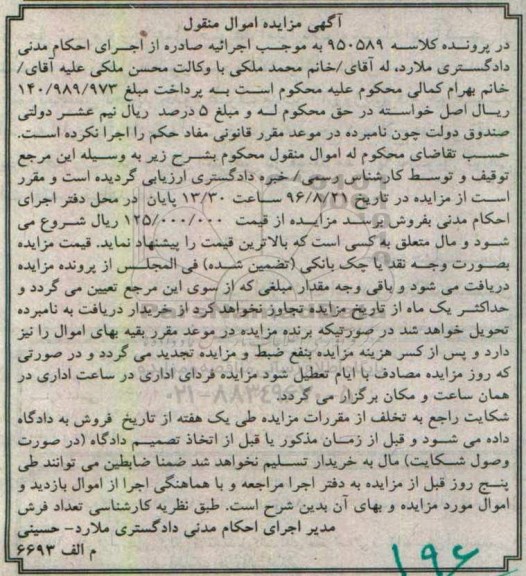 آگهی مزایده اموال منقول
در پرونده کلاسه ۹۵۰۵۸۹ به موجب اجرائیه صادره از اجرای احکام مدنی
دادگستری ملارد، له آقای/خانم محمد ملکی با وکالت محسن ملکی علیه آقای/
خانم بهرام کمالی محکوم علیه محکوم است به پرداخت مبلغ ۱۴۰/۹۸۹/۹۷۳
ریال اصل خواسته در حق محکوم له و مبلغ ۵ درصد ریال نیم عشر دولتی
صندوق دولت چون نامبرده در موعد مقرر قانونی مفاد حکم را اجرا نکرده است.
حسب تقاضای محکوم له اموال منقول محکوم بشرح زیر به وسیله این مرجع
توقیف و توسط کارشناس رسمی/ خبره دادگستری ارزیابی گردیده است و مقرر
است از مزایده در تاریخ ۹۶/۸/۱۵ ساعت ۱۳/۳۰ پایان در محل دفتر اجرای
احکام مدنی بفروش برسد مزایده از قیمت ۱۲۵/۰۰۰/۰۰۰ ریال شروع می
شود و مال متعلق به کسی است که بالاترین قیمت را پیشنهاد نماید. قیمت مزایده
بصورت وجه نقد یا چک بانکی (تضمین شده) فی المجلس از برونده مزایده
دریافت می شود و باقی وجه مقدار مبلغی که از سوی این مرجع تعیین می گردد و
حداکثر یک ماه از تاریخ مزایده تجاوز نخواهد کرد از خریدار دریافت به نامبرده
تحویل خواهد شد در صورتیکه برنده مزایده در موعد مقرر بقیه بهای اموال را نیز
دارد و پس از کسر هزینه مزایده بنفع ضبط و مزایده تجدید می گردد و در صورتی
که روز مزایده مصادف با ایام تعطیل شود مزایده فردای اداری در ساعت اداری در
همان ساعت و مکان برگزار می گردد.
شکایت راجع به تخلف از مقررات مزایده طی یک هفته از تاریخ فروش به دادگاه
داده می شود و قبل از زمان مذکور یا قبل از اتخاذ تصمیم دادگاه (در صورت
وصول شکایت) مال به خریدار تسلیم نخواهد شد ضمنا ضابطین می توانند طی
پنج روز قبل از مزایده به دفتر اجرا مراجعه و با هماهنگی اجرا از اموال بازدید و
اموال مورد مزایده و بهای آن بدین شرح است. طبق نظریه کارشناسی تعداد فرش
مدیر اجرای احکام مدنی دادگستری ملارد- حسینی
م الف ۶۶۹۳
۱۹۶